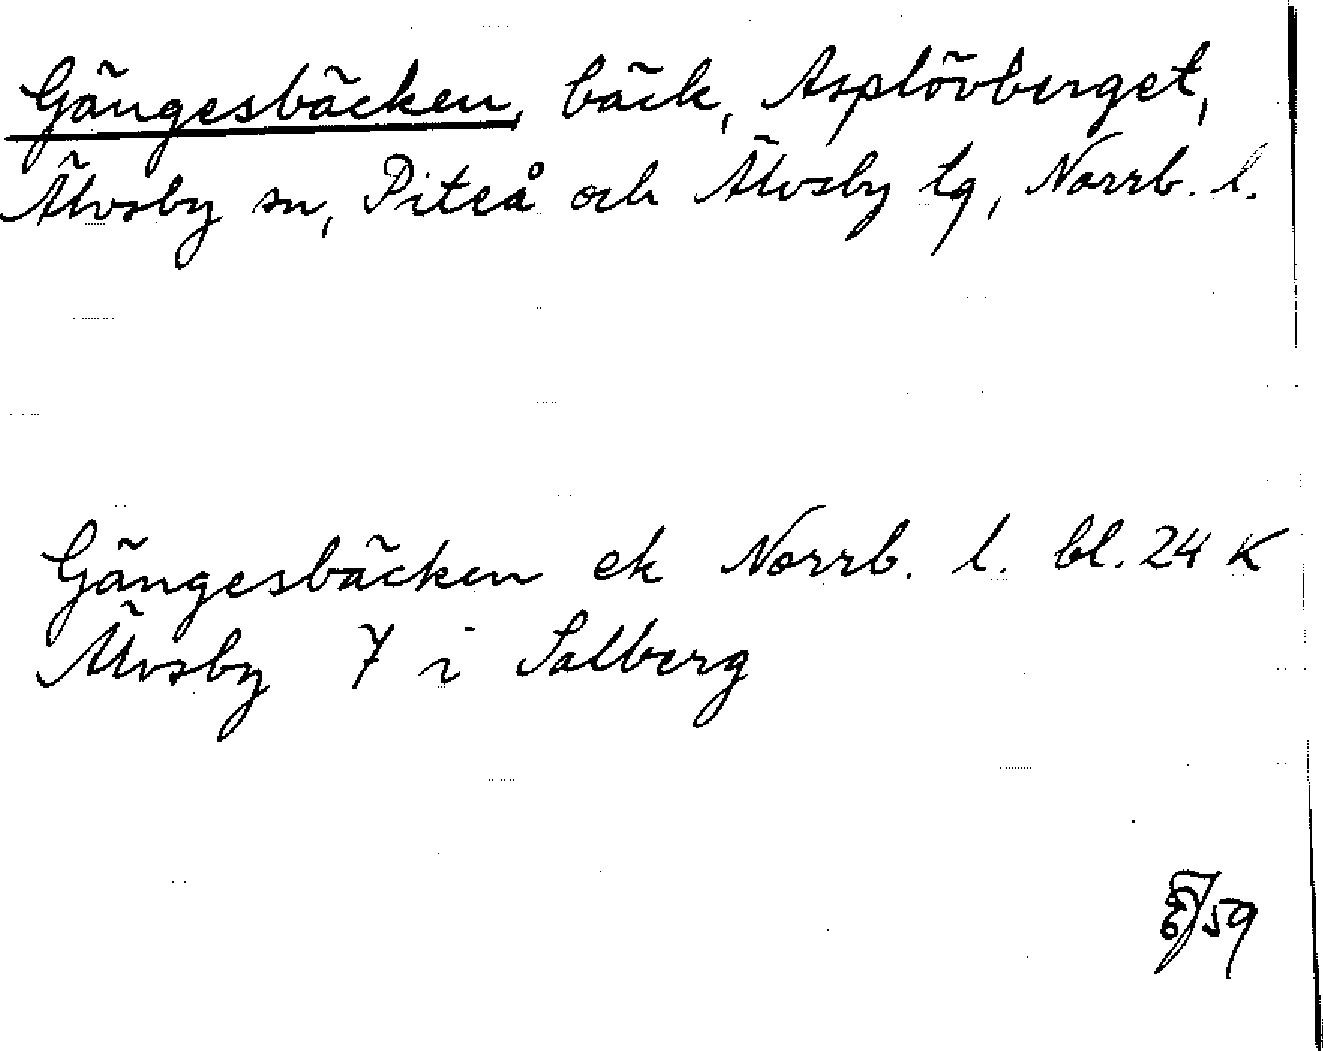 Gängesbäcken, bäck, Asplövberget,
Älvsby sn, Piteå och Älvsby tg, Norrb. l.
Gängesbäcken ek Norrb. l. bl. 24 K
Älvsby 7 i Salberg
/59